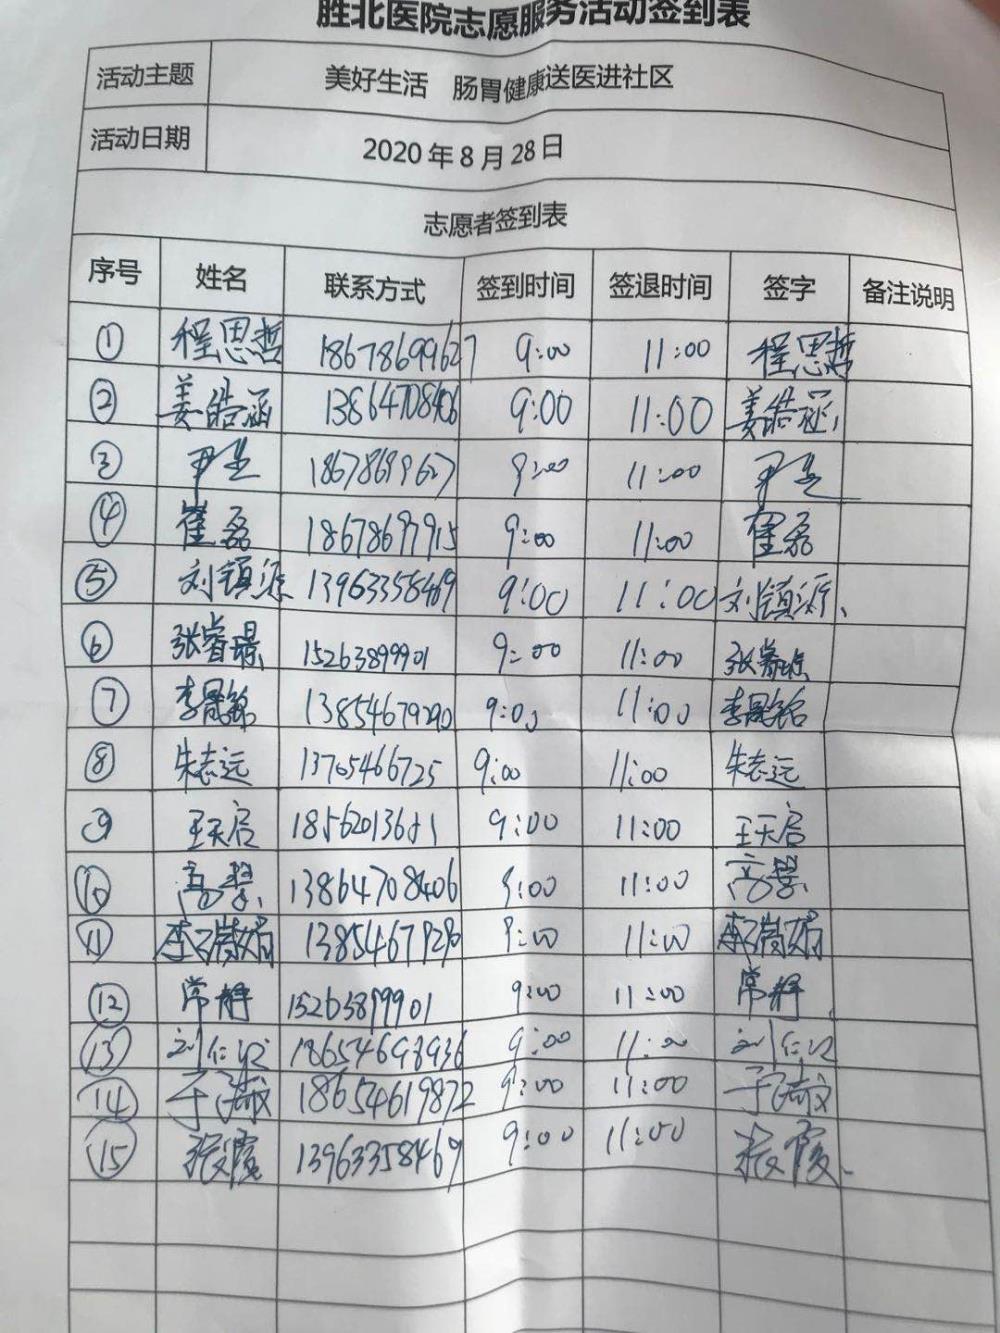 胜北医院志愿服务活动签到表
活动主题 美好生活 肠胃健康送医进社区
活动日期 2020年8月28日
志愿者签到表
序号 姓名 联系方式 签到时间 签退时间 签字 备注说明
① 程思哲 18678699627 9:00 11:00 程思哲
② 姜皓涵 13864708406 9:00 11:00 姜皓涵
③ 18678699627 9:00 11:00
④ 崔磊 18678697915 9:00 11:00 崔磊
⑤ 刘镇源 13963358469 9:00 11:00 刘镇源
⑥ 张睿璟 15263899901 9:00 11:00 张睿璟
⑦ 李晟铭 13854679290 9:00 11:00 李晟铭
⑧ 朱志远 13705466725 9:00 11:00 朱志远
⑨ 王天启 9:00 11:00 王天启
⑩ 13864708406 9:00 11:00
⑪ 13854679290 9:00 11:00
⑫ 常静 15263899901 9:00 11:00 常静
⑬ 18654698936 9:00 11:00
⑭ 18654619872 9:00 11:00
⑮ 张霞 13963358469 9:00 11:00 张霞